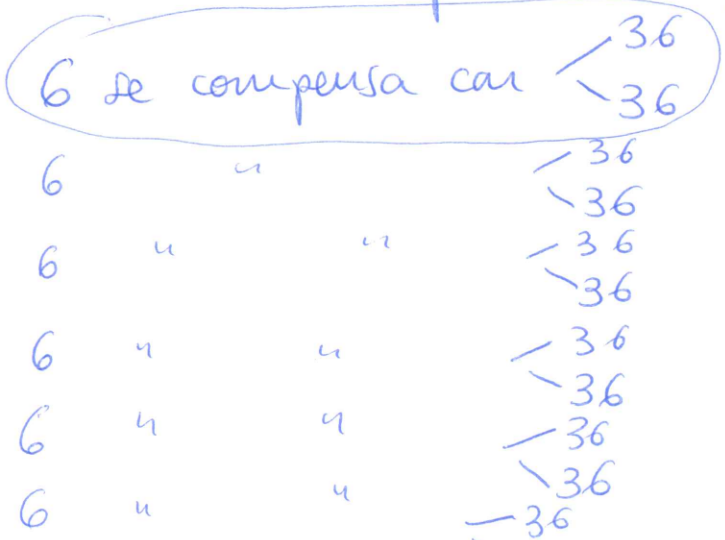 36
6 se compensa con
36
36
6 "
36
6 " " 36
36
6 " " 36
36
6 " " 36
36
6 " " 36